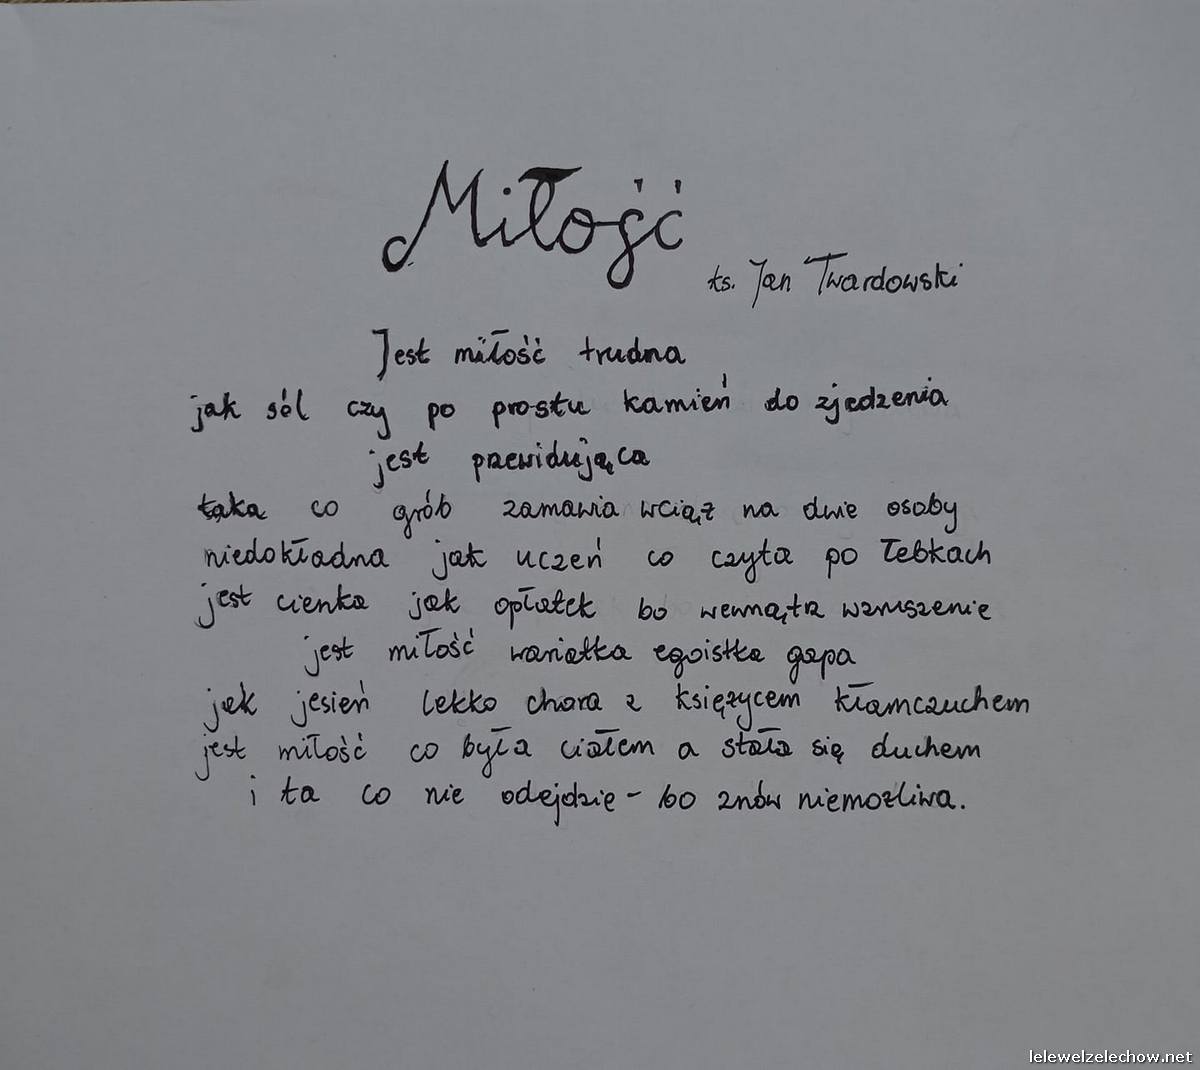 Miłość
ks. Jan Twardowski
Jest miłość trudna
jak sól czy po prostu kamień do zjedzenia
jest przewidująca
taka co grób zamawia wciąż na dwie osoby
niedokładna jak uczeń co czyta po łebkach
jest cienka jak opłatek bo wewnątrz wzruszenie
jest miłość wariatka egoistka gapa
jak jesień lekko chora z księżycem kłamczuchem
jest miłość co była ciałem a stała się duchem
i ta co nie odejdzie - bo znów niemożliwa.
lelewelzelechow.net